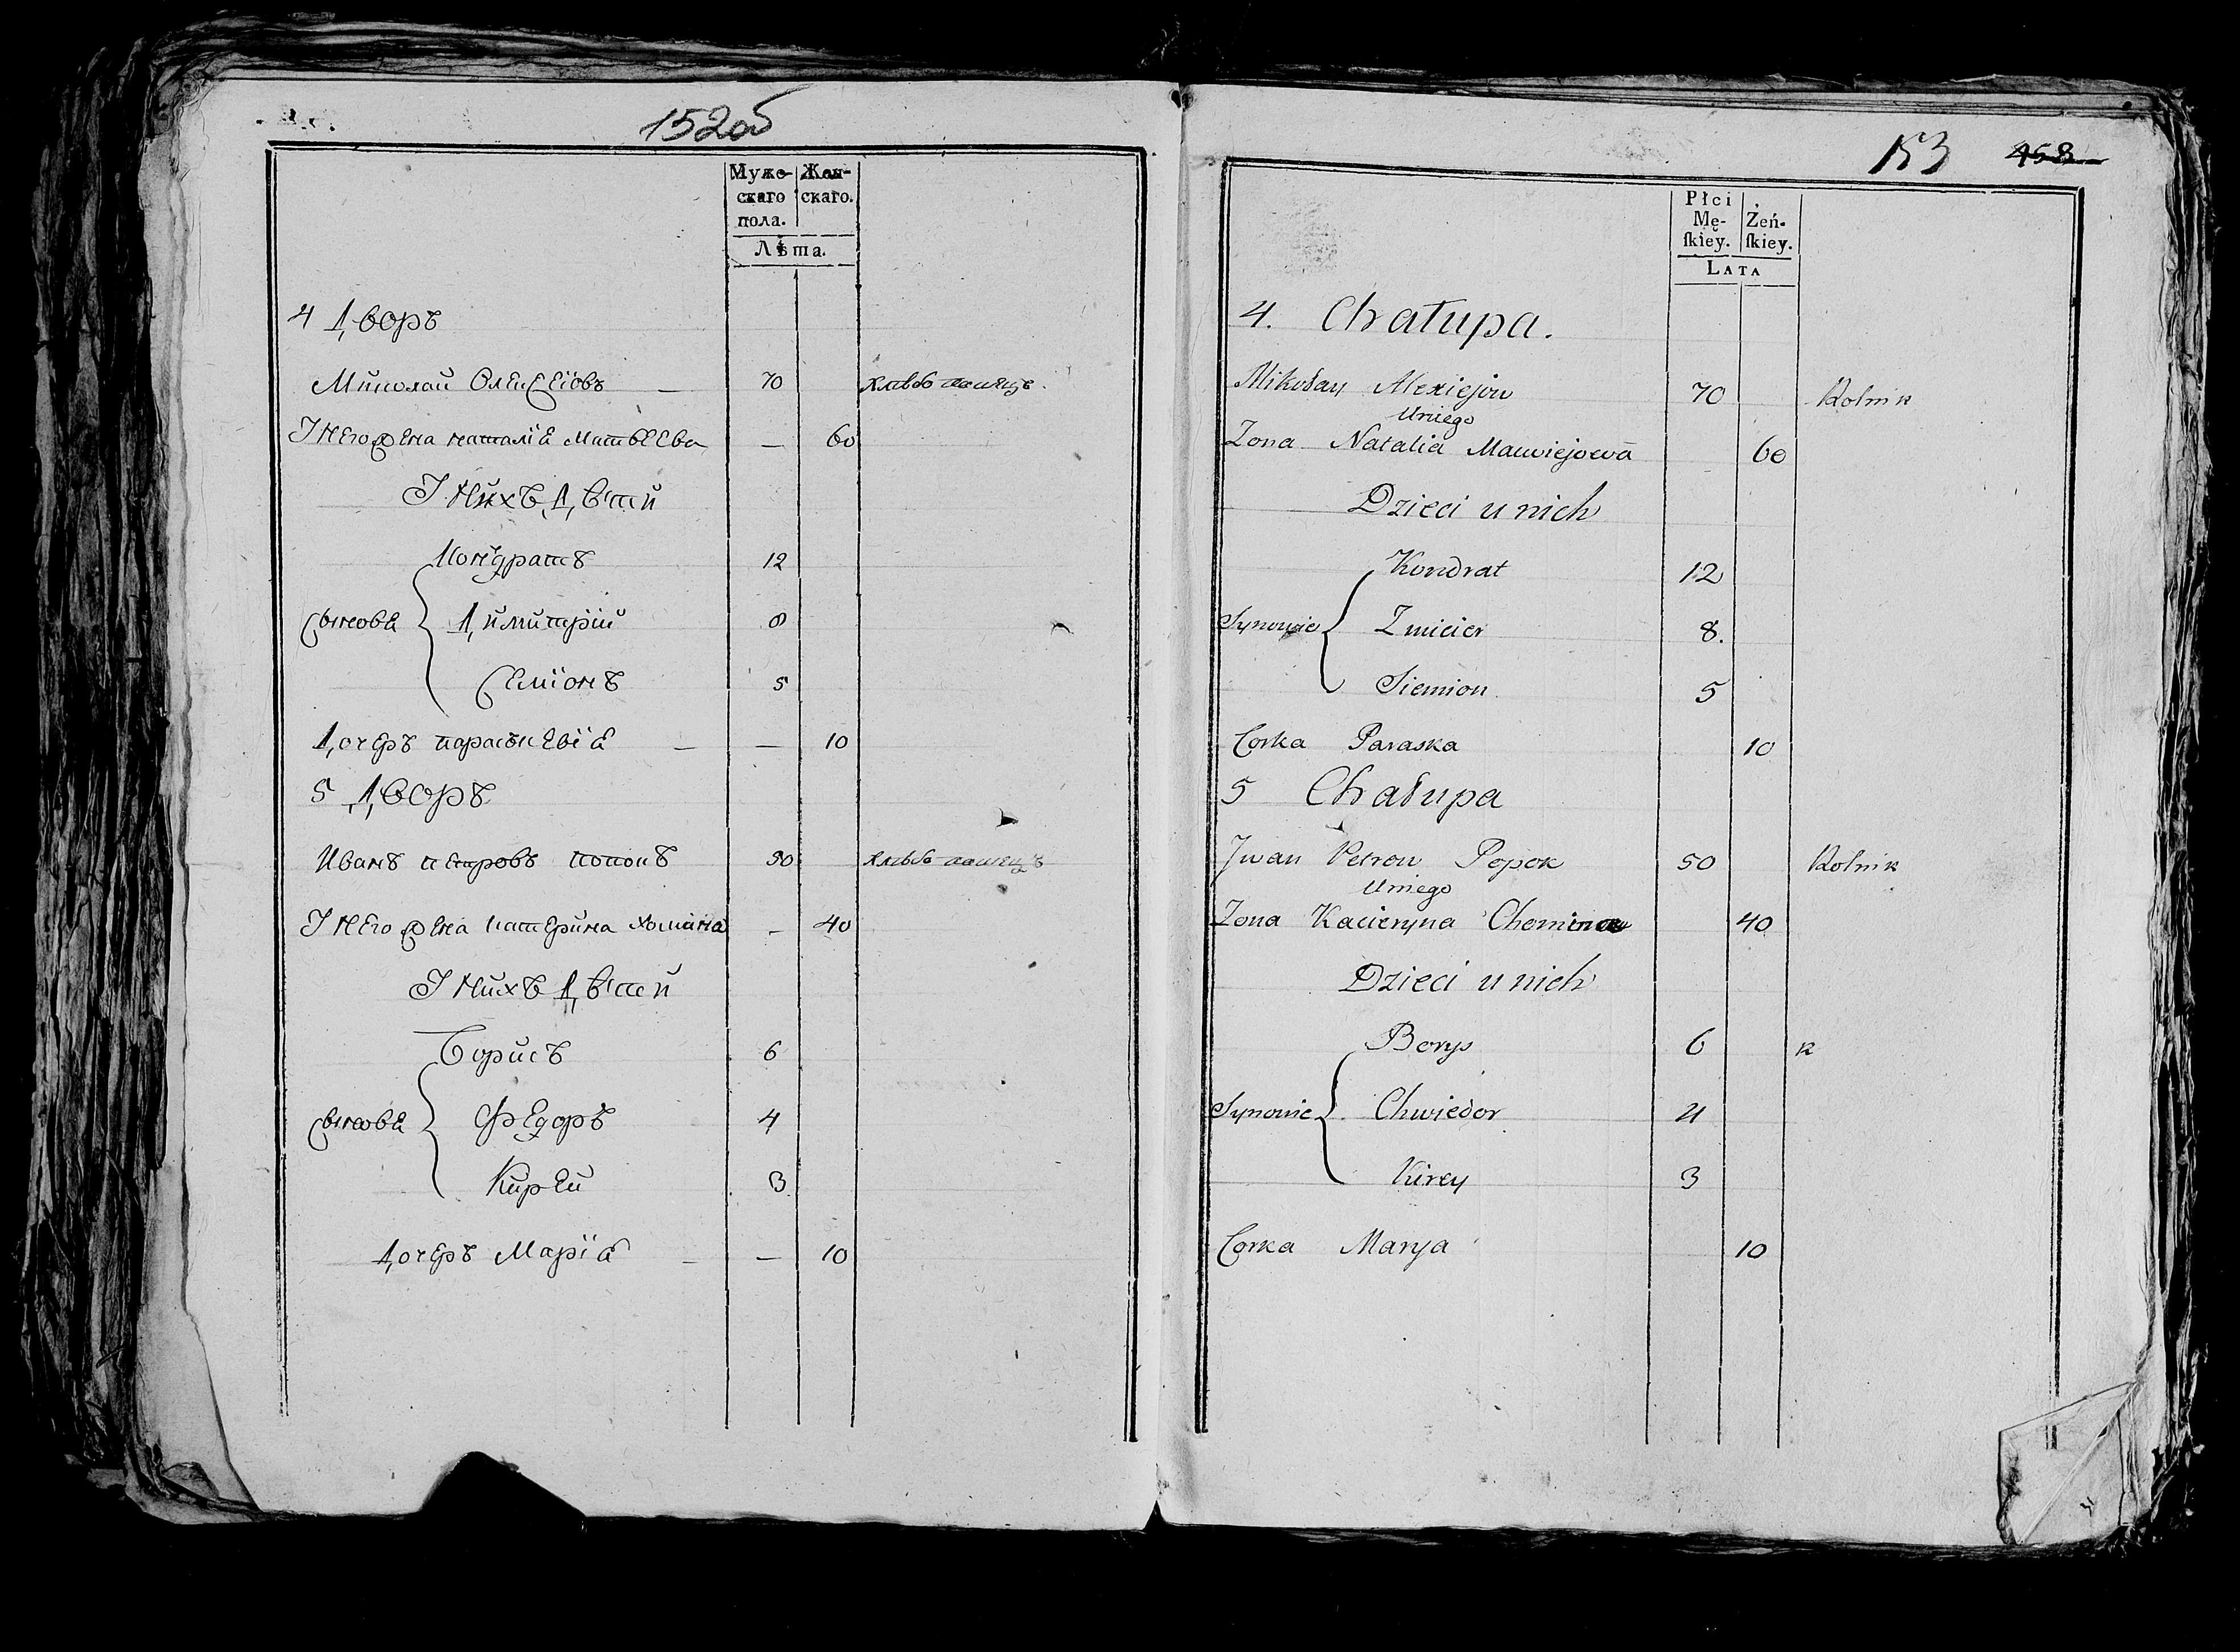 152об
Муже-
скаго
пола.
Жен-
скаго.
Лѣта.
4 Дворъ
Миколай Олексѣіовъ — 70 хлѣбопашецъ
У него жена наталія Матвеева — 60
У нихъ дѣтей
Кондратъ 12
сынове { Димитрій 8
Семіонъ 5
дочеръ парасъкевія — — 10
5 Дворъ
Иванъ петровъ попокъ 50 хлѣбопашецъ
У него жена катерина хомина — 40
У нихъ дѣтей
Борисъ 6
сынове { Федоръ 4
Кирей 3
дочеръ Марія — — 10
153 458
Płci
Mę-
ſkiey.
Żeń-
ſkiey.
LATA
4. Chałupa.
Mikołay Alexiejow 70 Rolnik
Uniego
Zona Natalia Maciejowa 60
Dzieci u nich
Kondrat 12
Synowie { Zmicier 8.
Siemion 5
Corka Paraska 10
5 Chałupa
Jwan Petrow Popok 50 Rolnik
Uniego
Zona Kacieryna Chomina 40
Dzieci u nich
Borys 6 к
Synowie { Chwiedor 4
Kirey 3
Corka Marya 10